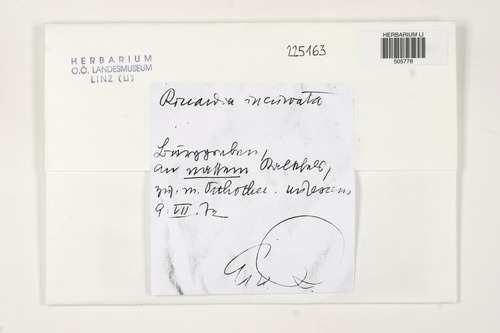 HERBARIUM
O.Ö. LANDESMUSEUM
LINZ (LI)
225163
HERBARIUM LI
505778
Riccardia incurvata
Burggraben,
an nassem Kalkfels,
zw. m. Orthothec. rufescens
9. VII. 72